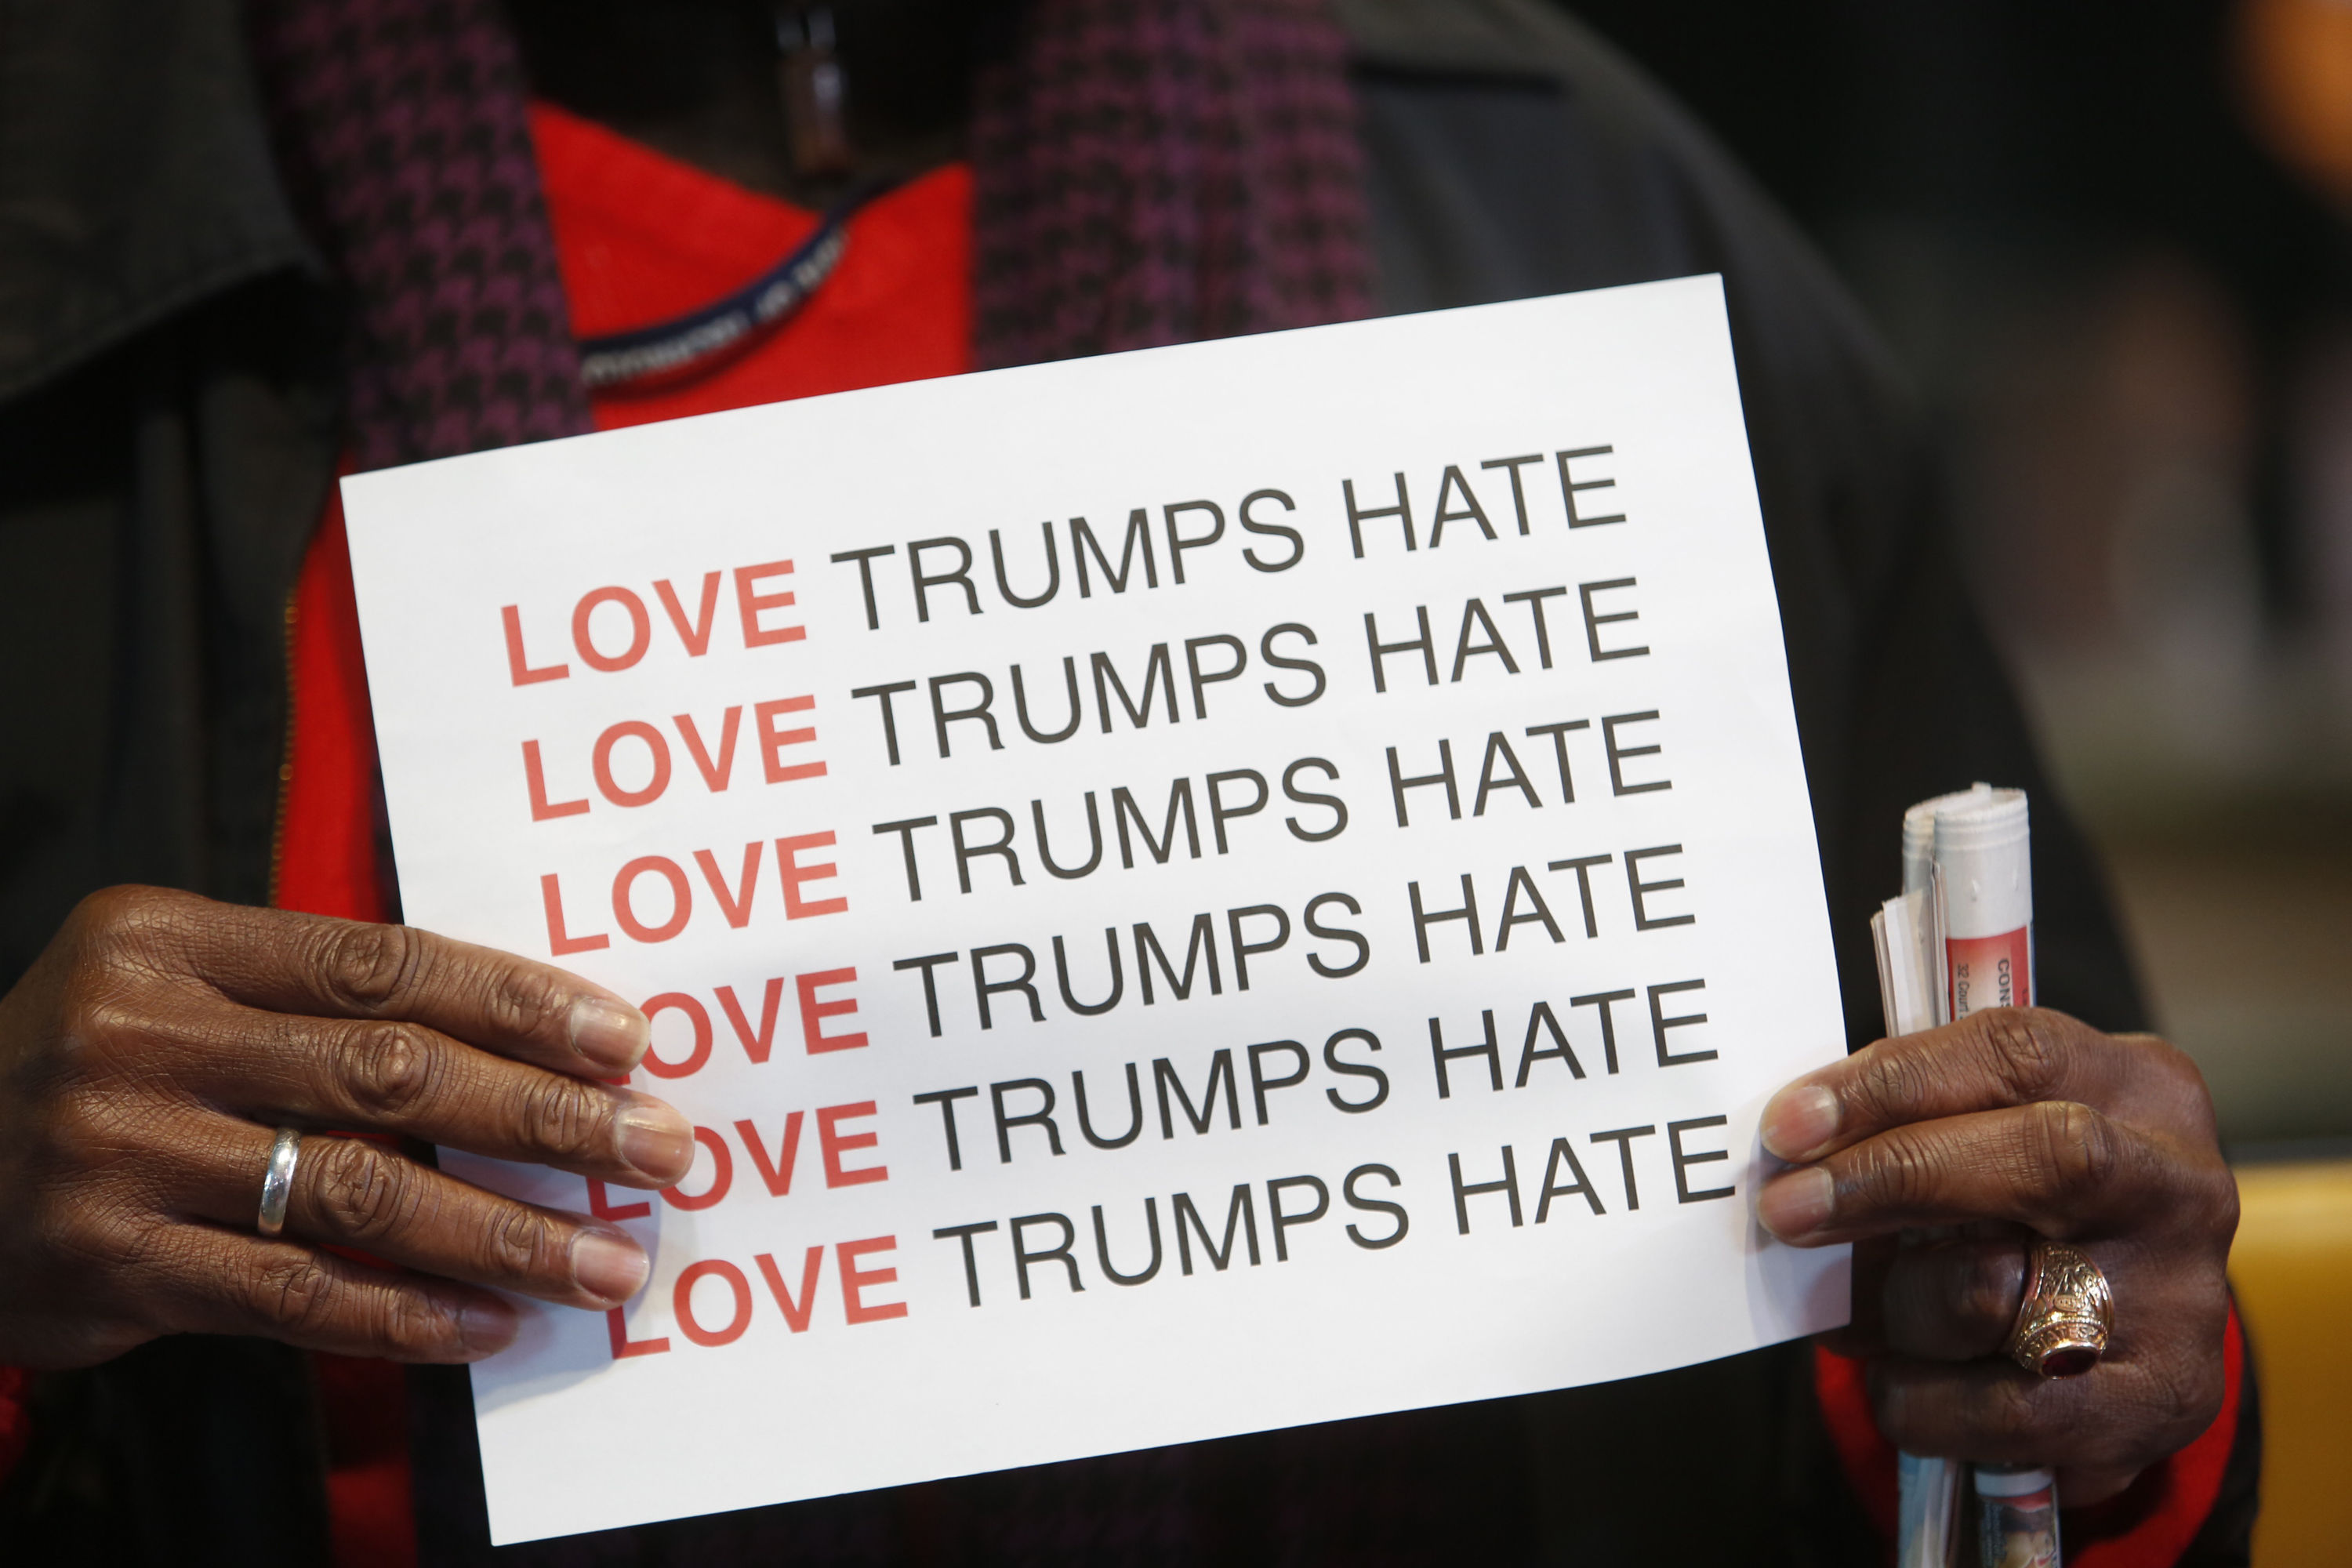 LOVE TRUMPS HATE
LOVE TRUMPS HATE
LOVE TRUMPS HATE
LOVE TRUMPS HATE
LOVE TRUMPS HATE
LOVE TRUMPS HATE
32 Court